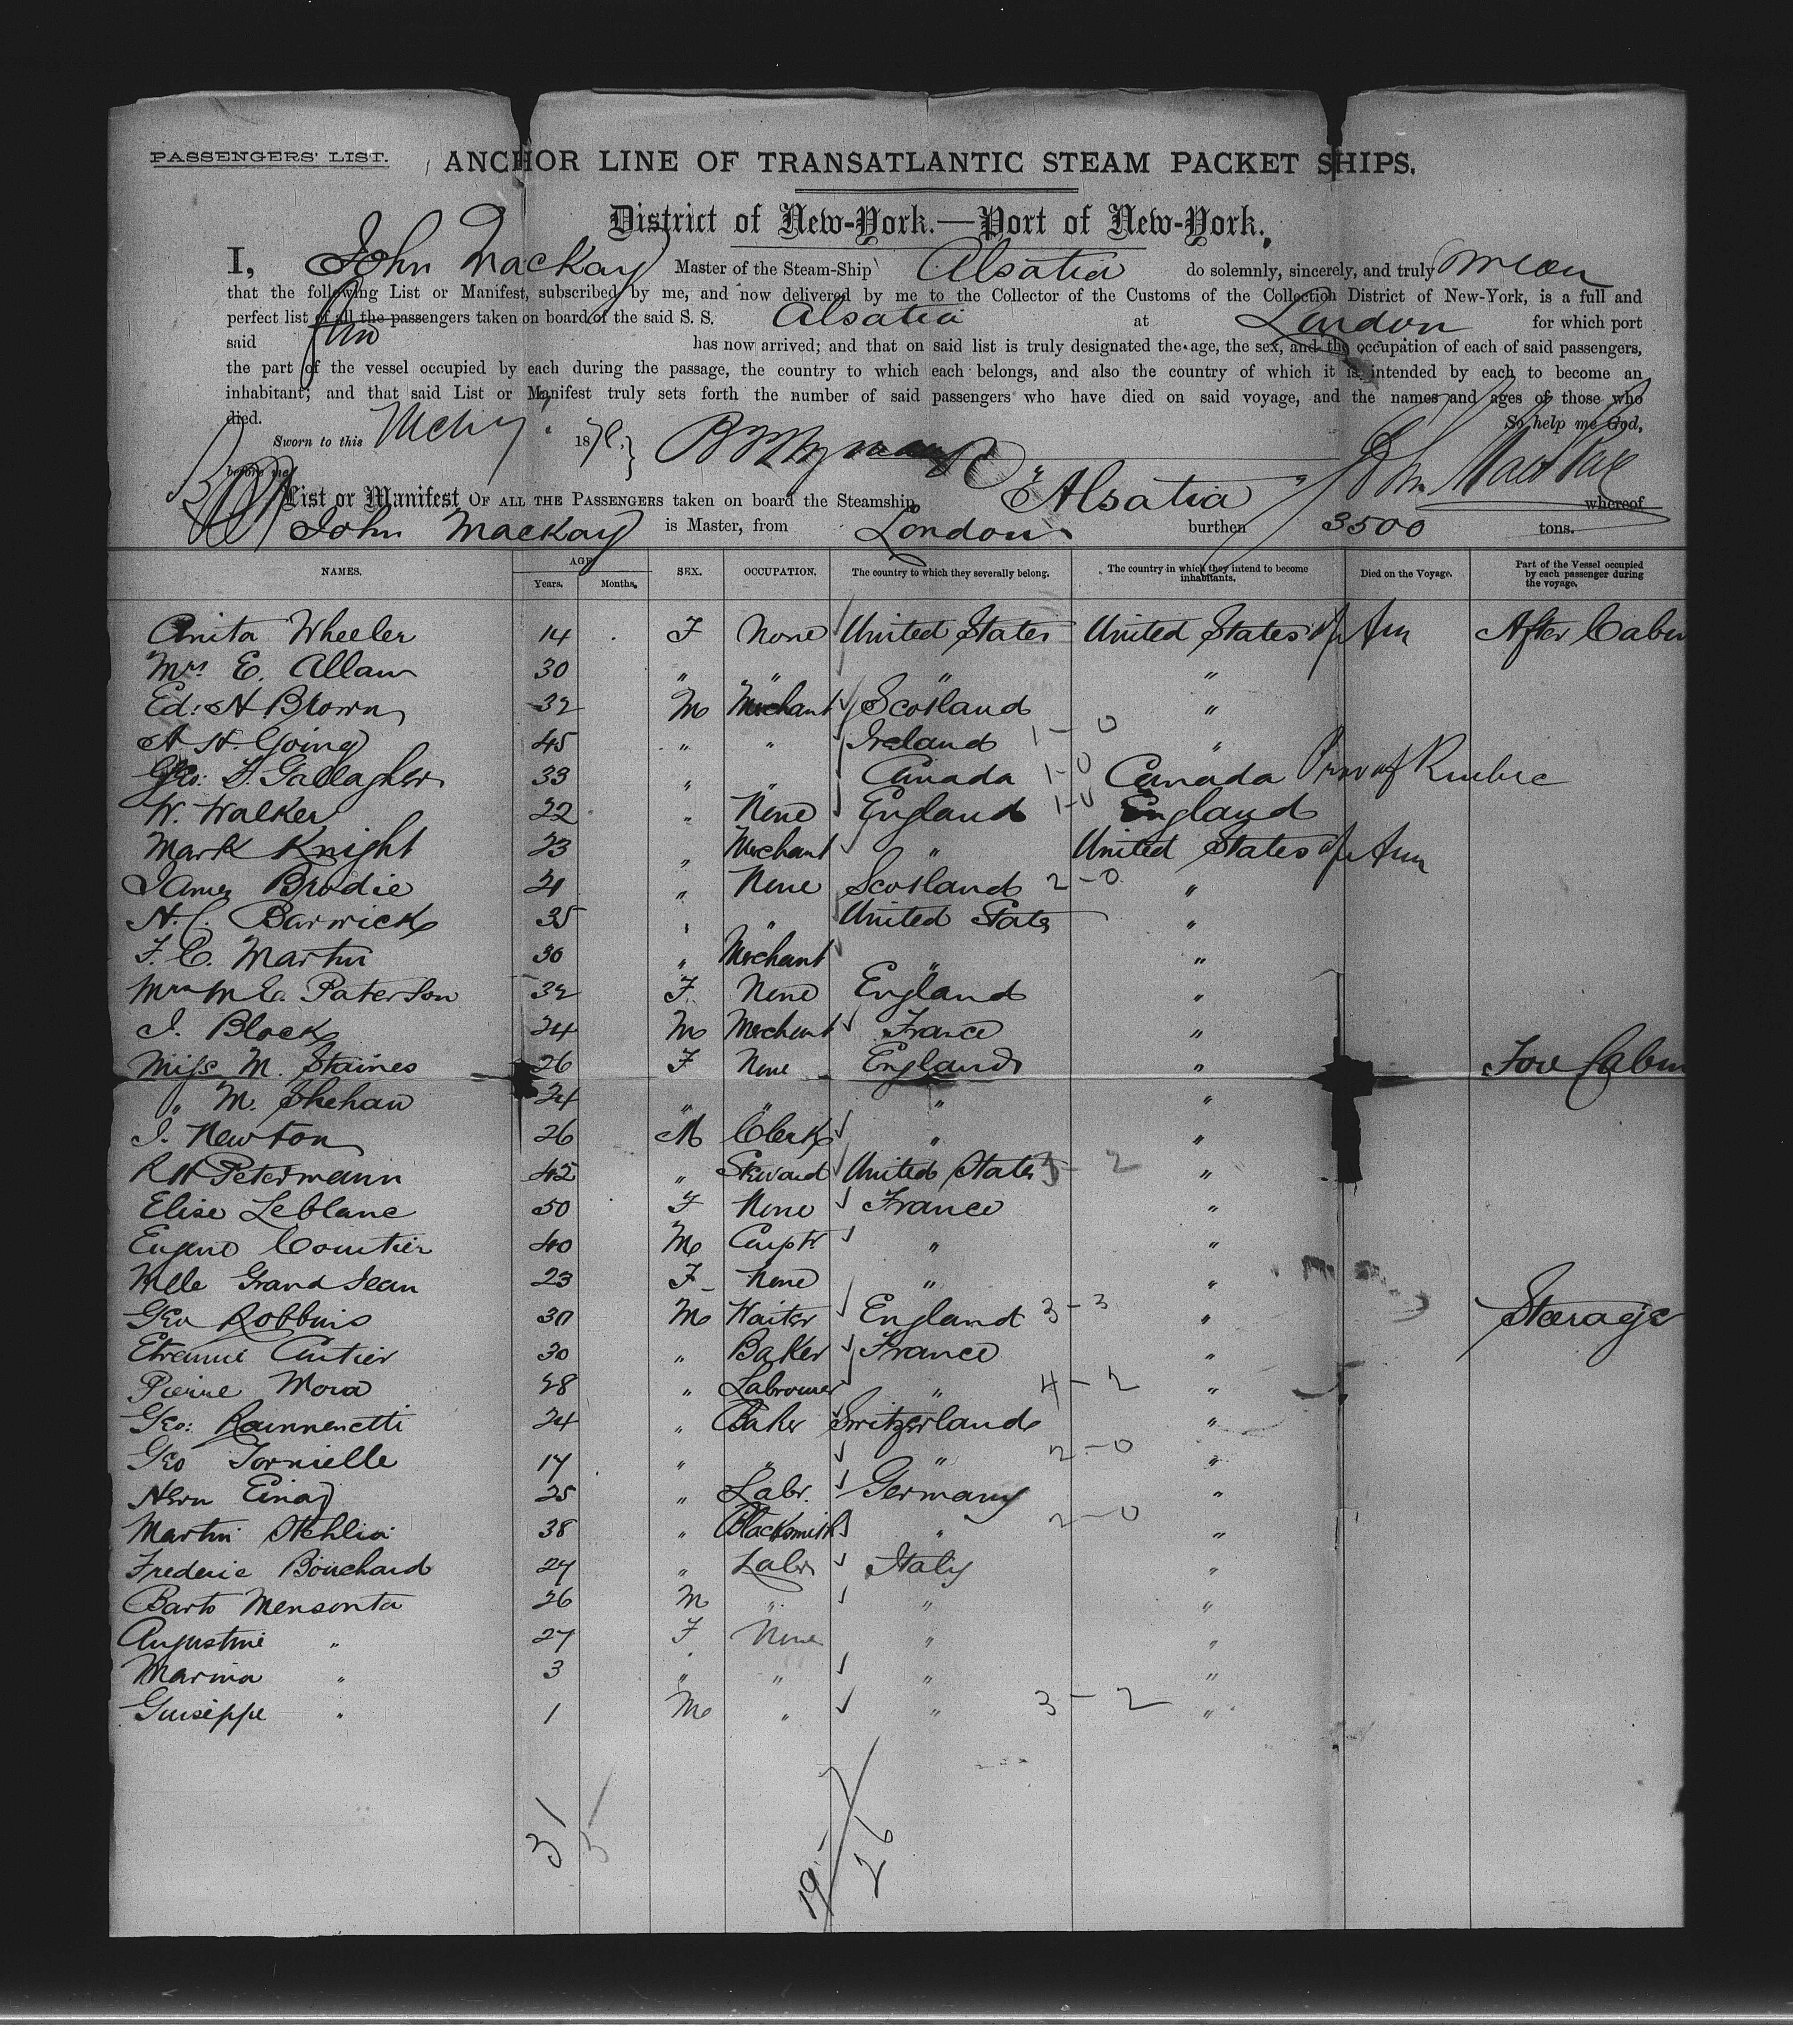 PASSENGERS' LIST.
ANCHOR LINE OF TRANSATLANTIC STEAM PACKET SHIPS.
District of New-York.—Port of New-York.
I, John Mackay Master of the Steam-Ship Alsatia do solemnly, sincerely, and truly swear
that the following List or Manifest, subscribed by me, and now delivered by me to the Collector of the Customs of the Collection District of New-York, is a full and
perfect list of all the passengers taken on board of the said S. S. Alsatia at London for which port
said has now arrived; and that on said list is truly designated the age, the sex, and the occupation of each of said passengers,
the part of the vessel occupied by each during the passage, the country to which each belongs, and also the country of which it is intended by each to become an
inhabitant; and that said List or Manifest truly sets forth the number of said passengers who have died on said voyage, and the names and ages of those who
died. So help me God,
Sworn to this 187
before me
List or Manifest OF ALL THE PASSENGERS taken on board the Steamship Alsatia whereof
John Mackay is Master, from London burthen 3500 tons.
NAMES. AGE Years. Months. SEX. OCCUPATION. The country to which they severally belong. The country in which they intend to become inhabitants. Died on the Voyage. Part of the Vessel occupied by each passenger during the voyage.
Anita Wheeler 14 F None United States United States of Am After Cabin
Mrs E. Allan 30 " " " "
Ed: A Brown 32 M Merchant Scotland "
A H. Going 45 " " Ireland 1-0 "
Geo: F. Gallagher 33 " " Canada 1-0 Canada Prov of Quebec
W. Walker 22 " None England 1-0 England
Mark Knight 23 " Merchant " United States of Am
James Brodie 21 " None Scotland 2-0 "
H. C. Barwick 35 " " United States "
F. C. Martin 30 " Merchant " "
Mrs M E. Paterson 32 F. None England "
J. Block 24 M Merchant France "
Miss M. Staines 26 F None England " Fore Cabin
" M. Shehan 24 " " " "
J. Newton 26 M Clerk " "
R H Petermann 42 " Steward United States 3-2 "
Elise Leblanc 50 F None France "
Eugene Coustier 40 M Carptr " "
Melle Grand Jean 23 F None " "
Geo Robbins 30 M Waiter England 3-3 " Steerage
Etienne Autier 30 " Baker France "
Pierre Mora 28 " Labourer " 4-2 "
Geo: Rainnenetti 24 " Baker Switzerland "
Geo Tornielle 17 " " " 2-0 "
Hern Einay 25 " Labr. Germany "
Martin Stehlin 38 " Blacksmith " 2-0 "
Frederic Bouchard 27 " Labr Italy "
Barto Mensonta 26 M " " "
Augustine " 27 F None " "
Marina " 3 " " " "
Guiseppe " 1 M " " 3-2 "
31 5
19 / 26